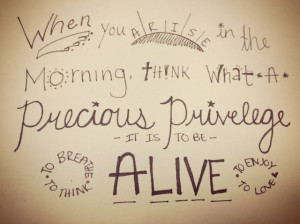 When you ARISE in the
Morning, THINK What-A-
Precious Privelege
- IT IS TO BE -
TO BREATHE
TO THINK
ALIVE
TO ENJOY
TO LOVE